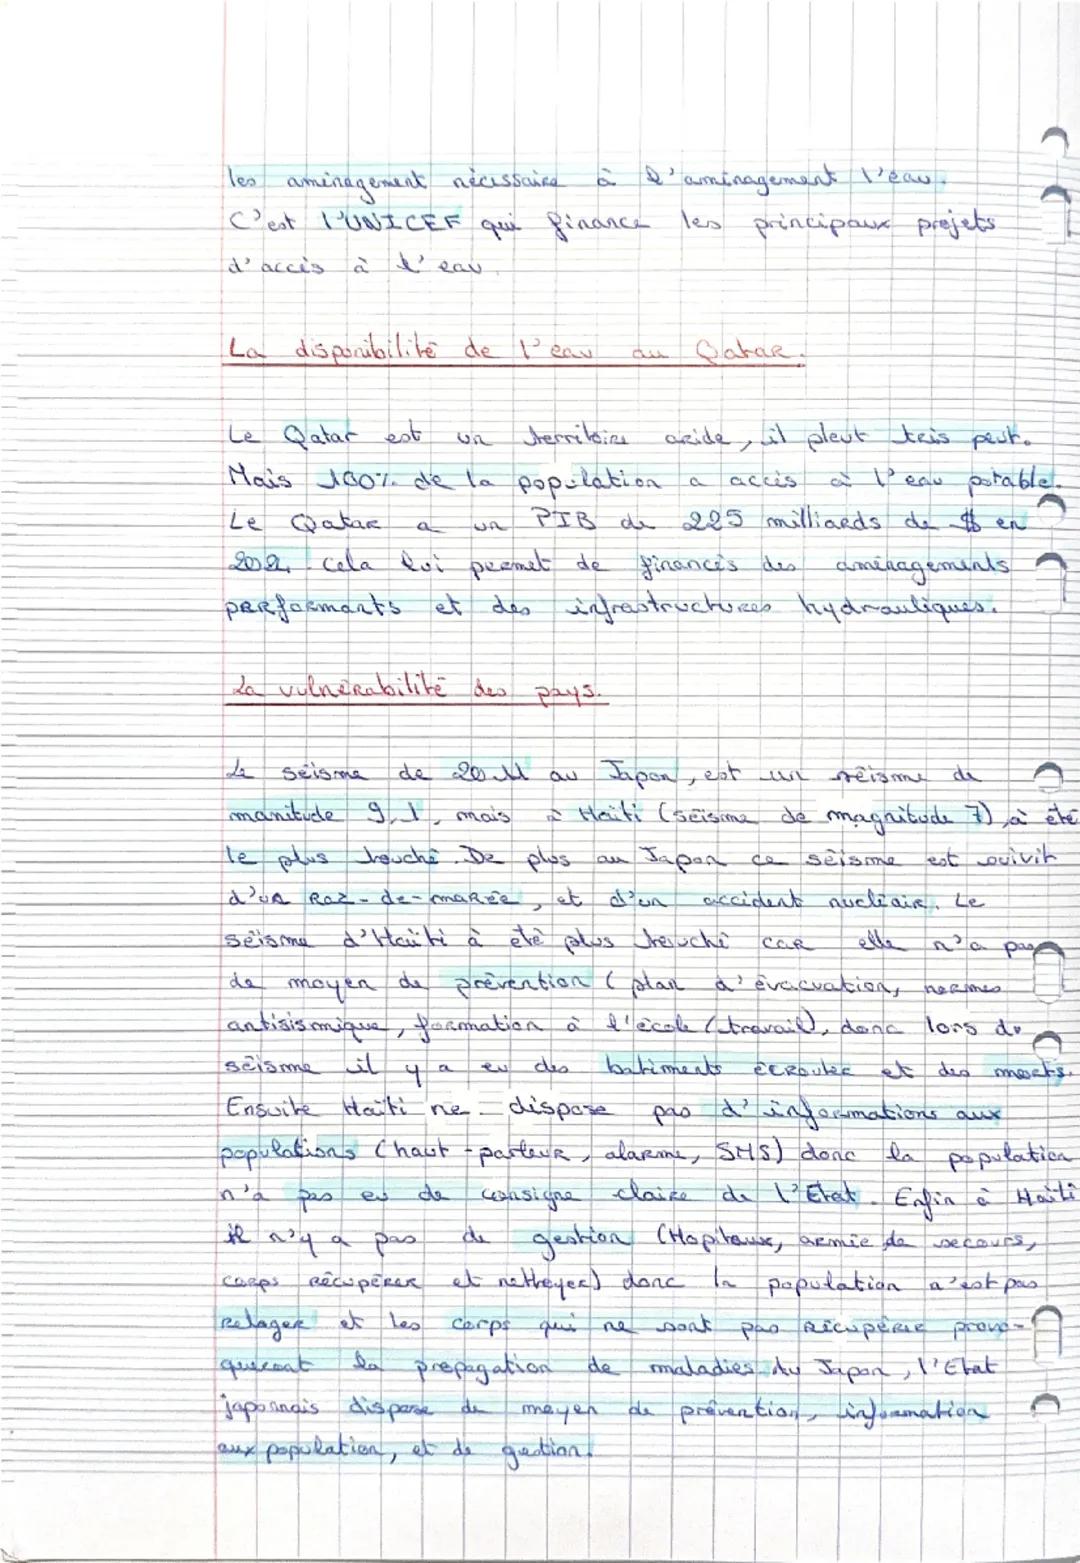 les aménagement nécessaire à l'aménagement l'eau.
C'est l'UNICEF qui finance les principaux projets
d'accès à l'eau.
La disponibilité de l'eau au Qatar.
Le Qatar est un territoire aride, il pleut très peut.
Mais 100% de la population a accès à l'eau potable.
Le Qatar a un PIB de 225 milliards de $ en
2022, cela lui permet de financés des aménagements
performants et des infrastructures hydrauliques.
La vulnérabilité des pays.
Le séisme de 2011 au Japon, est un séisme de
manitude 9,1, mais à Haïti (séisme de magnitude 7) à été
le plus touché. De plus au Japon ce séisme est suivit
d'un Raz-de-marée, et d'un accident nucléaire. Le
séisme d'Haïti à été plus touché car elle n'a pas
de moyen de prévention (plan d'évacuation, normes
antisismique, formation à l'école (travail), donc lors du
séisme il y a eu des batiments écroulée et des morts.
Ensuite Haïti ne dispose pas d'informations aux
populations (haut-parleur, alarme, SMS) donc la population
n'a pas eu de consigne claire de l'État. Enfin à Haïti
il n'y a pas de gestion (Hopitaux, armée de secours,
corps récupérer et nettoyer) donc la population n'est pas
reloger et les corps qui ne sont pas récupérée provo-
queront la propagation de maladies. Au Japon, l'Etat
japonnais dispose de moyen de prévention, information
aux population, et de gestion.